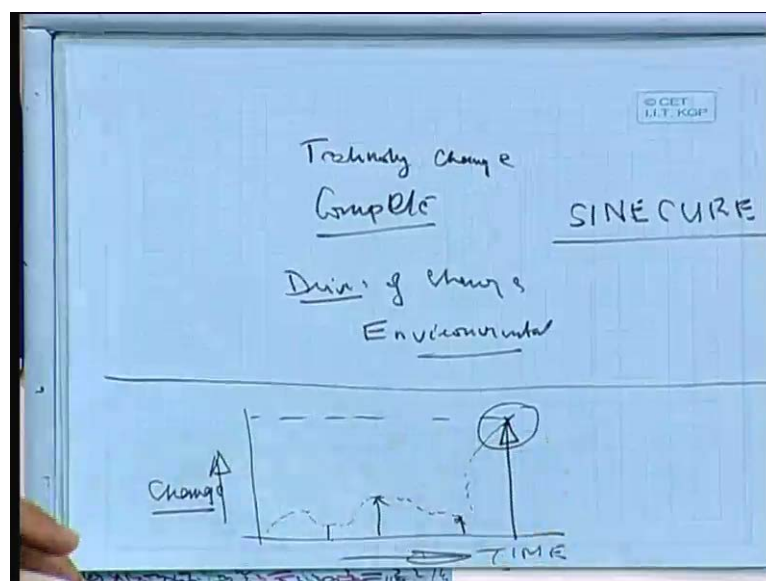 © CET
I.I.T. KGP
Technology change
SINECURE
Drivers of change
Environmental
Change
TIME